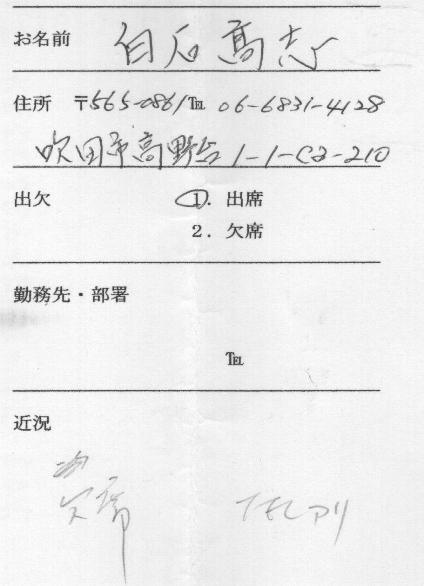 お名前 白石高志
住所 〒565-0861 ℡ 06-6831-4128
吹田市高野台1-1-C2-210
出欠 1. 出席
2. 欠席
勤務先・部署
℡
近況
欠席 TELアリ